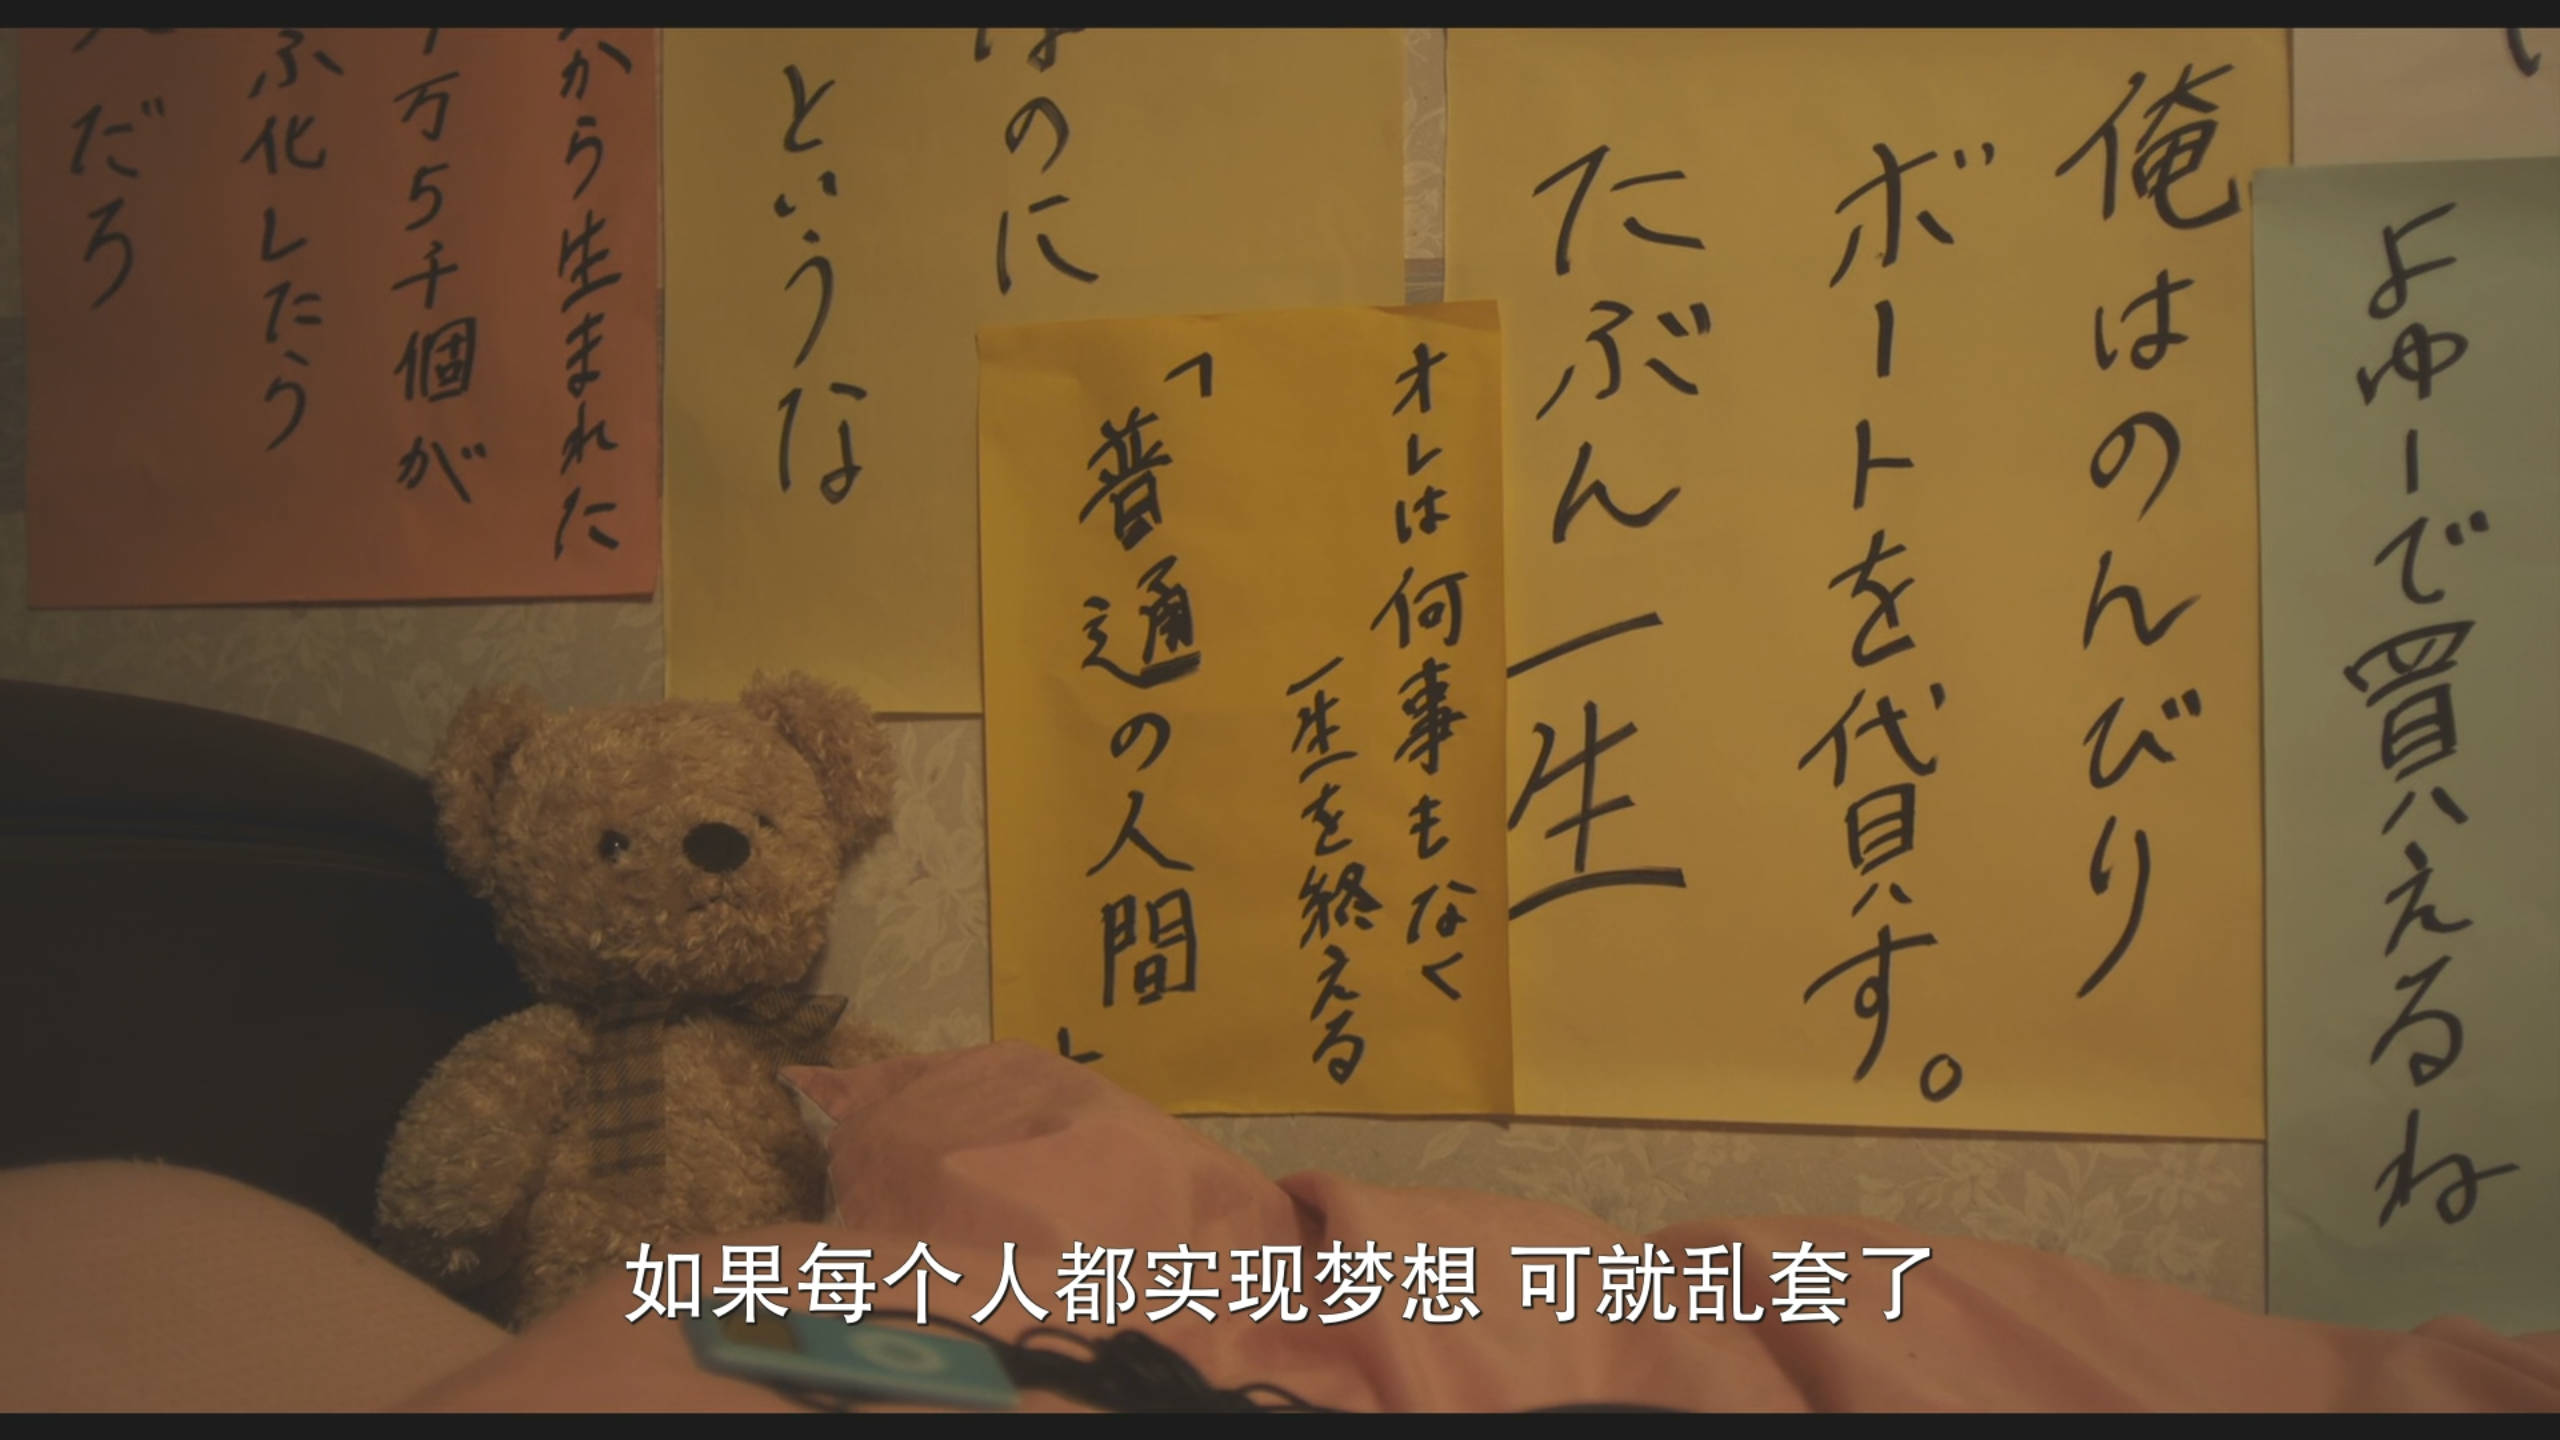 よゆーで買えるね
俺はのんびり
ボートを代貝す。
たぶん一生
オレは何事もなく
一生を終える
「普通の人間」
はのに
というな
から生まれた
万5千個が
ふ化したう
だろ
如果每个人都实现梦想 可就乱套了